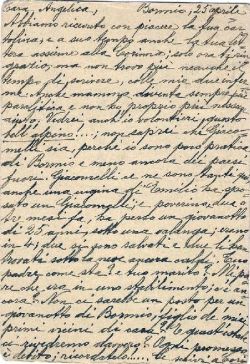 Cara Angelica, Bormio, 25 aprile
Abbiamo ricevuto con piacere la tua car=
tolina, e a suo tempo anche la tua let=
tera assieme alla Corinna;
non trovo più
tempo di scrivere, colle mie due infer=
me. Anche mamma diventa sempre più
paralitica e non ha proprio più nessun
Vedrei anch'io volontieri questo
bell'alpino...; non saprei che Giaco=
melli sia, perchè io sono poco pratica
di Bormio e meno ancora dei paesi
fuori. Giacomelli ce ne sono tanti;
anche una cugina di Camilo ha spo=
sato un Giacomelli; poverina, due
mesi fa, ha perso un giovanotto
di 25 anni, sotto una valanga; erano
in 4; due si sono salvati e due li han
trovati sotto la neve ancora caldi. Tuo
padre come sta? e tuo marito?
che era in uno stabilimento, è a
casa? Non ci sarebbe un posto per un
giovanotto di Bormio, figlio dei miei
primi vicini di casa? E quest'estate
ci rivedremo davvero? Ogni promessa
è debito, ricordatelo....